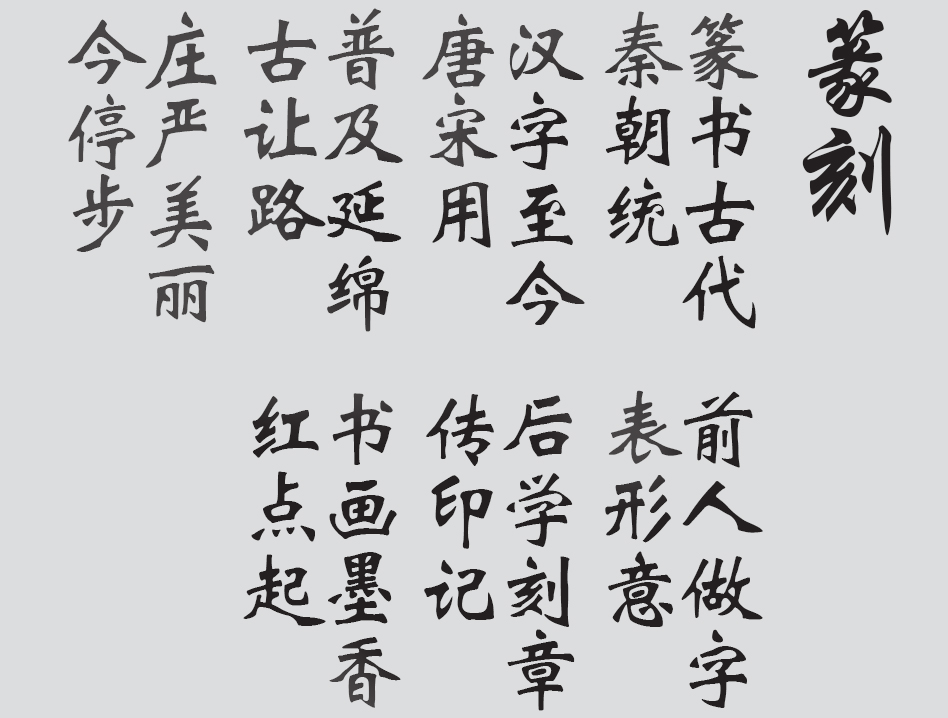 篆刻
篆书古代
秦朝统
汉字至今
唐宋用
普及延绵
古让路
庄严美丽
今停步
前人做字
表形意
后学刻章
传印记
书画墨香
红点起